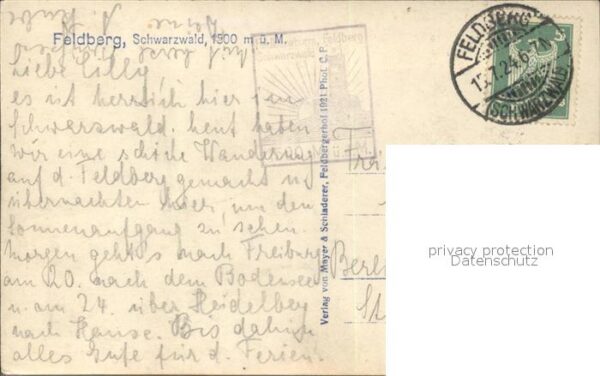 Feldberg, Schwarzwald, 1500 m ü. M.
liebe Cilly,
es ist herrlich hier im
Schwarzwald. heut haben
wir eine schöne Wanderung
auf d. Feldberg gemacht u.
übernachten hier, um den
Sonnenaufgang zu sehen
morgen geht's nach Freiburg
am 20. nach dem Bodensee
u. am 24. über Heidelbeg
nach Hause. Bis dahin
alles Gute für d. Ferien.
Verlag von Mayer & Schladerer, Feldbergerhof 1921 Phot. C. P.
Feldberg
FELDBERG
15.7.24.6-7N
(SCHWARZWALD)
Berl
privacy protection
Datenschutz